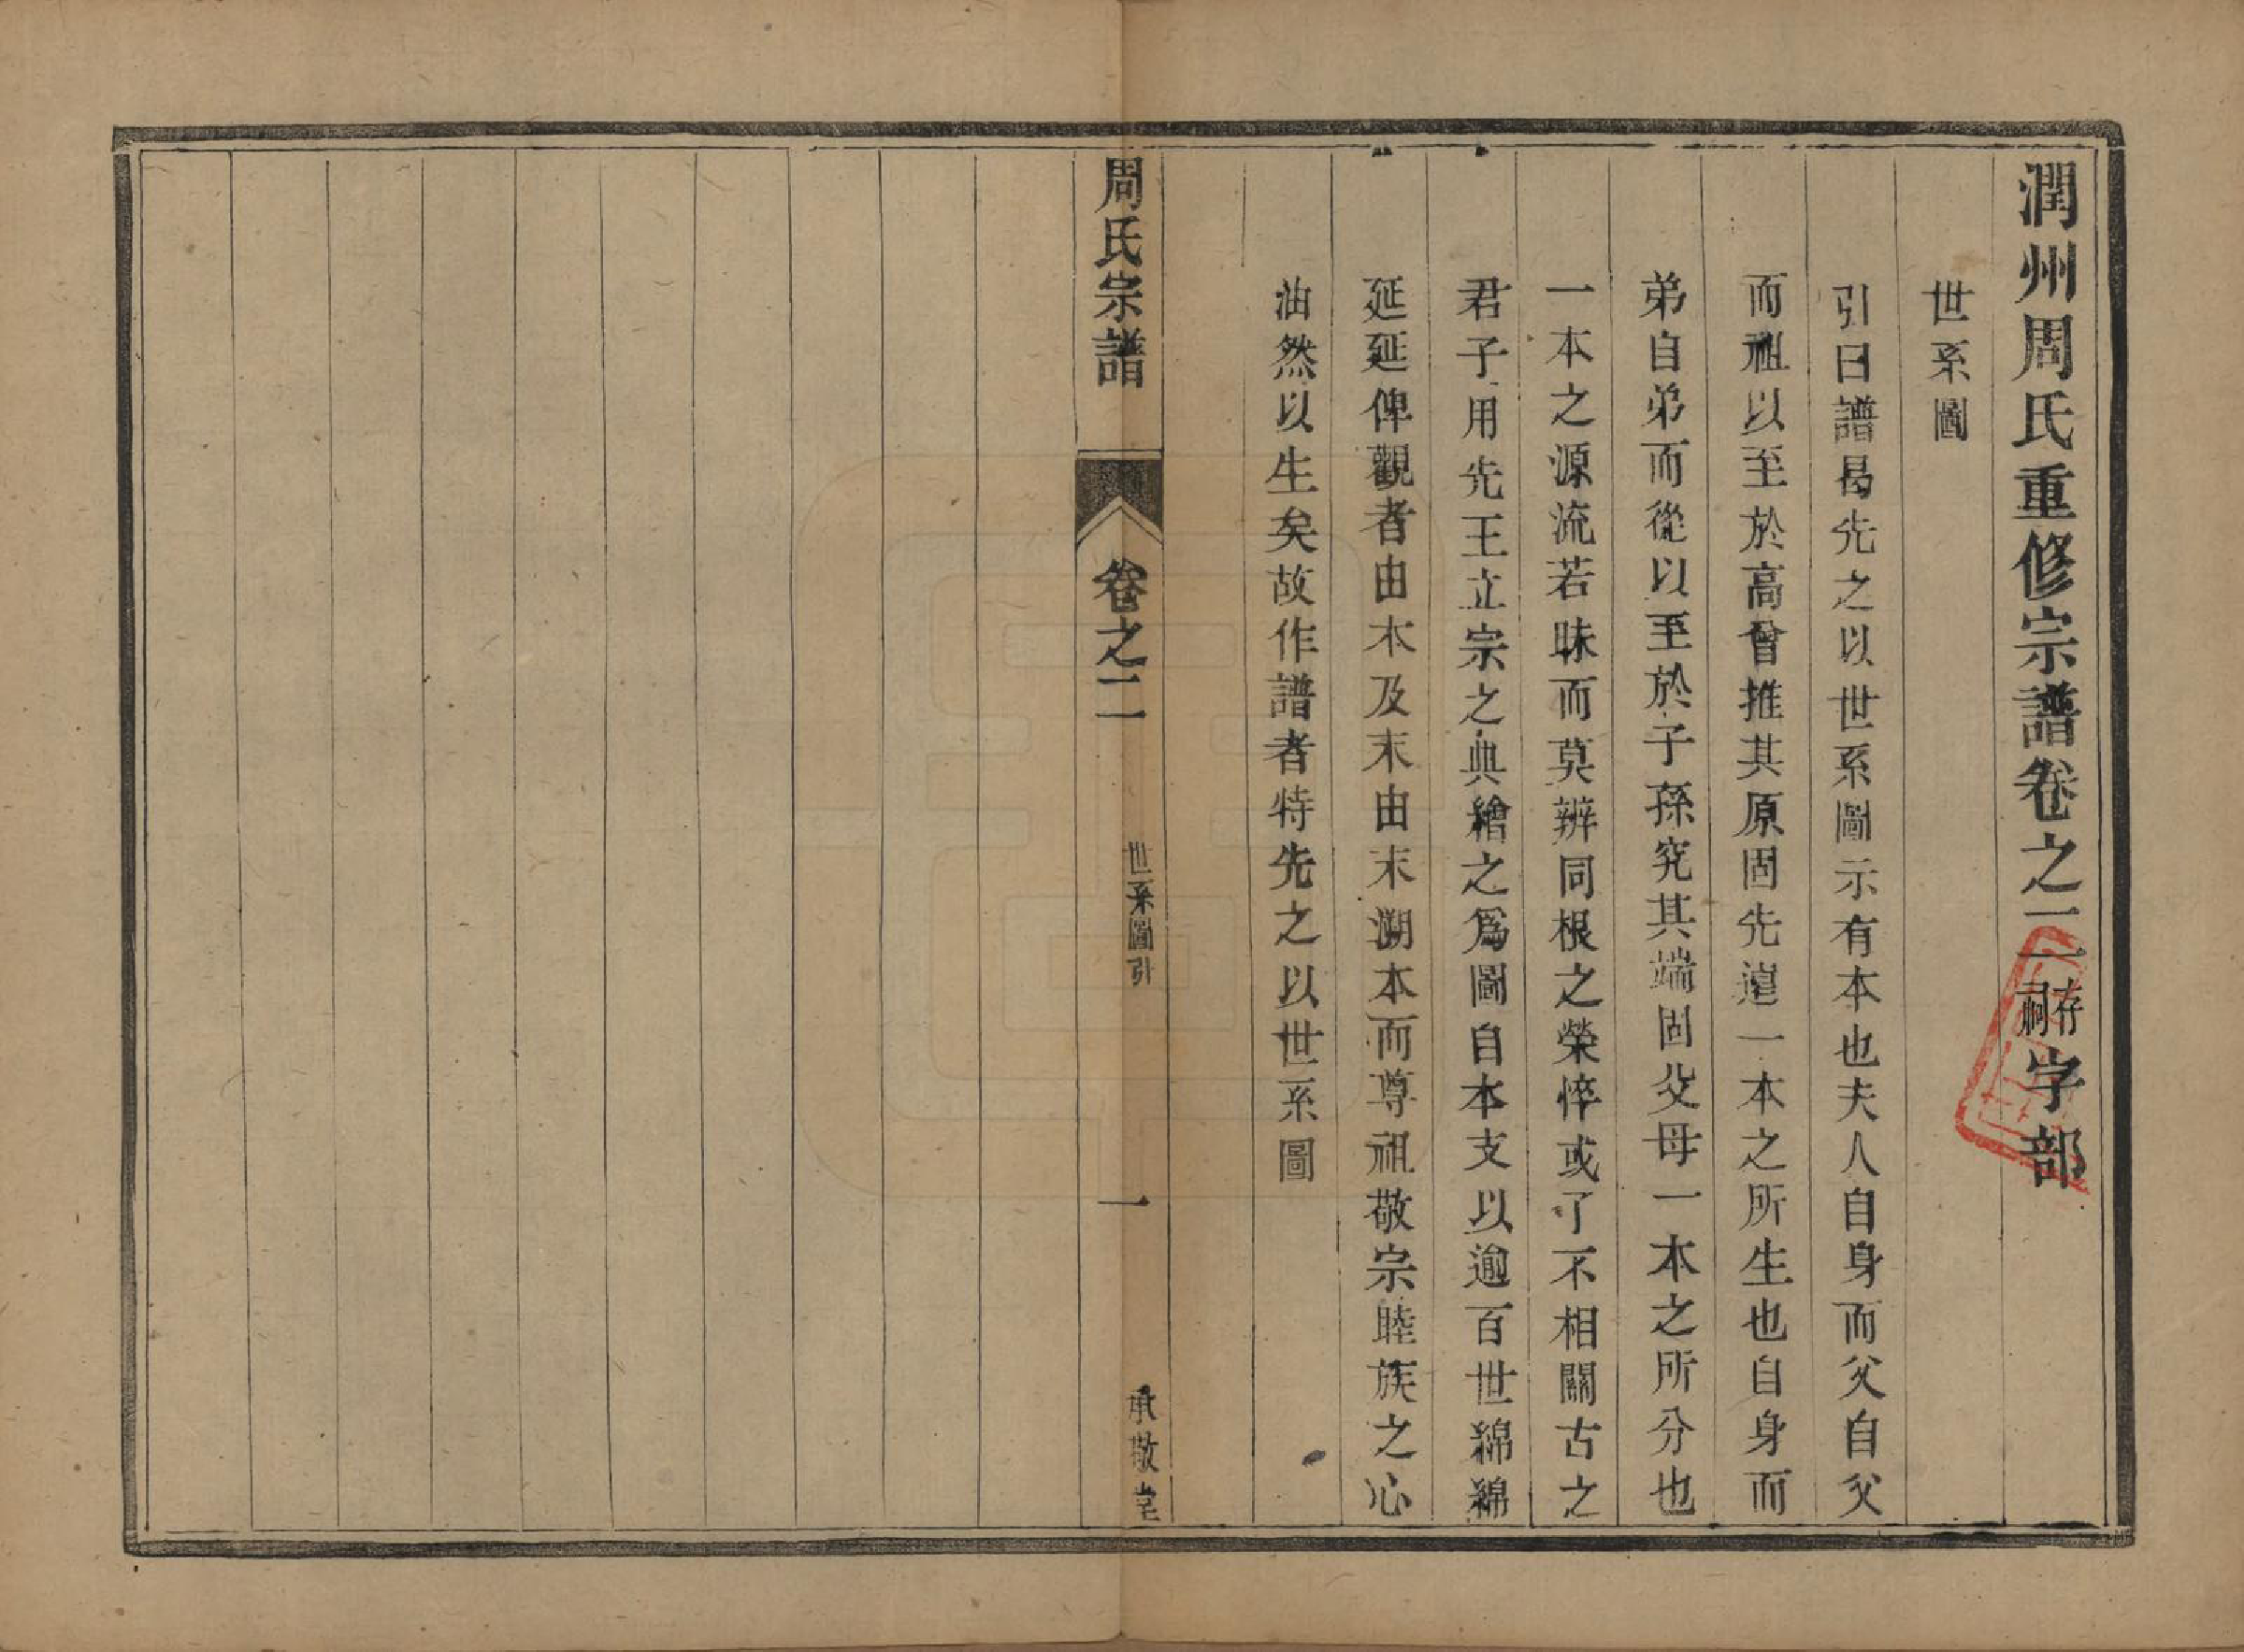 潤州周氏重修宗譜卷之二存祠字部
世系圖
引曰譜曷先之以世系圖示有本也夫人自身而父自父
而祖以至於高曾推其原固先遠一本之所生也自身而
弟自弟而從以至於子孫究其端固父母一本之所分也
一本之源流若昧而莫辨同根之榮悴或了不相關古之
君子用先王立宗之典繪之爲圖自本支以逾百世綿綿
延延俾觀者由本及末由末溯本而尊祖敬宗睦族之心
油然以生矣故作譜者特先之以世系圖
周氏宗譜 卷之二 世系圖引 一 承敬堂